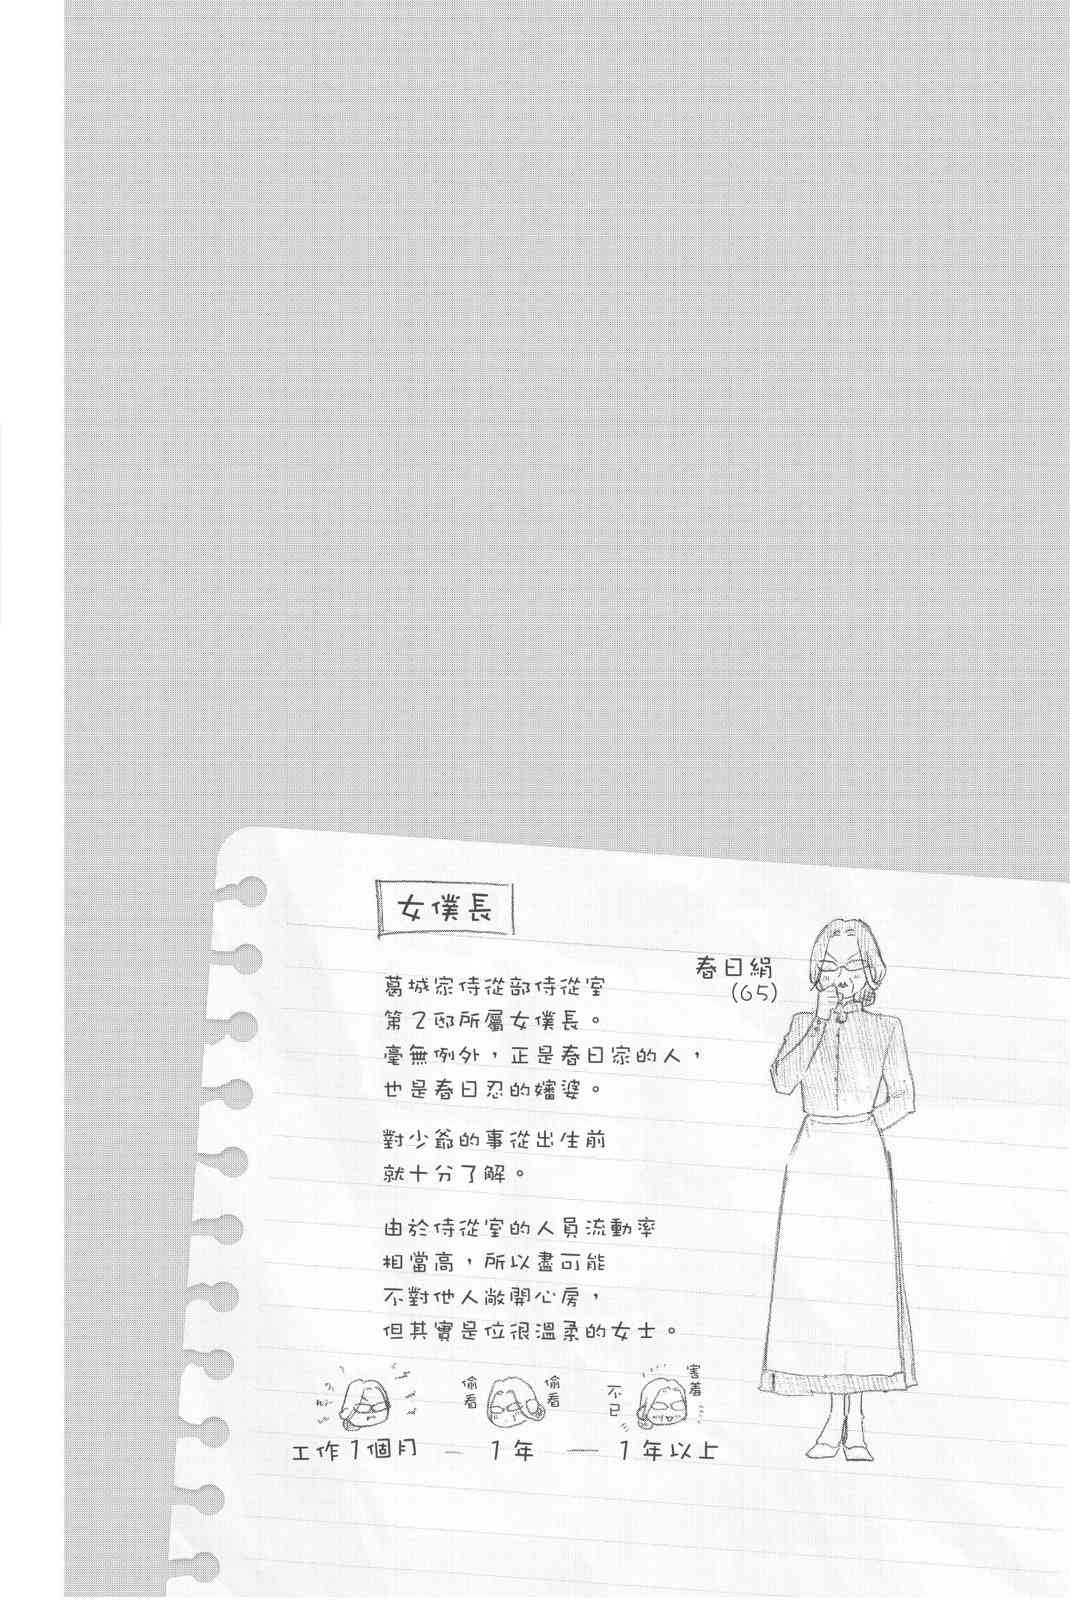 女僕長
春日絹
(65)
葛城家侍從部侍從室
第2邸所屬女僕長。
毫無例外，正是春日家的人，
也是春日忍的嬸婆。
對少爺的事從出生前
就十分了解。
由於侍從室的人員流動率
相當高，所以盡可能
不對他人敞開心房，
但其實是位很溫柔的女士。
偷看
偷看
害羞
不已
工作1個月 — 1年 — 1年以上